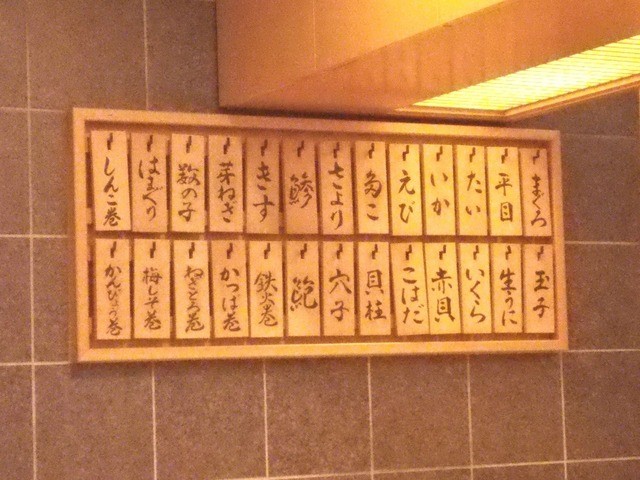 まぐろ
平目
たい
いか
えび
さより
鯵
きす
芽ねぎ
数の子
はまぐり
しんこ巻
玉子
生うに
いくら
赤貝
こはだ
貝柱
穴子
鮑
鉄火巻
かっぱ巻
ねぎとろ巻
梅しそ巻
かんぴょう巻